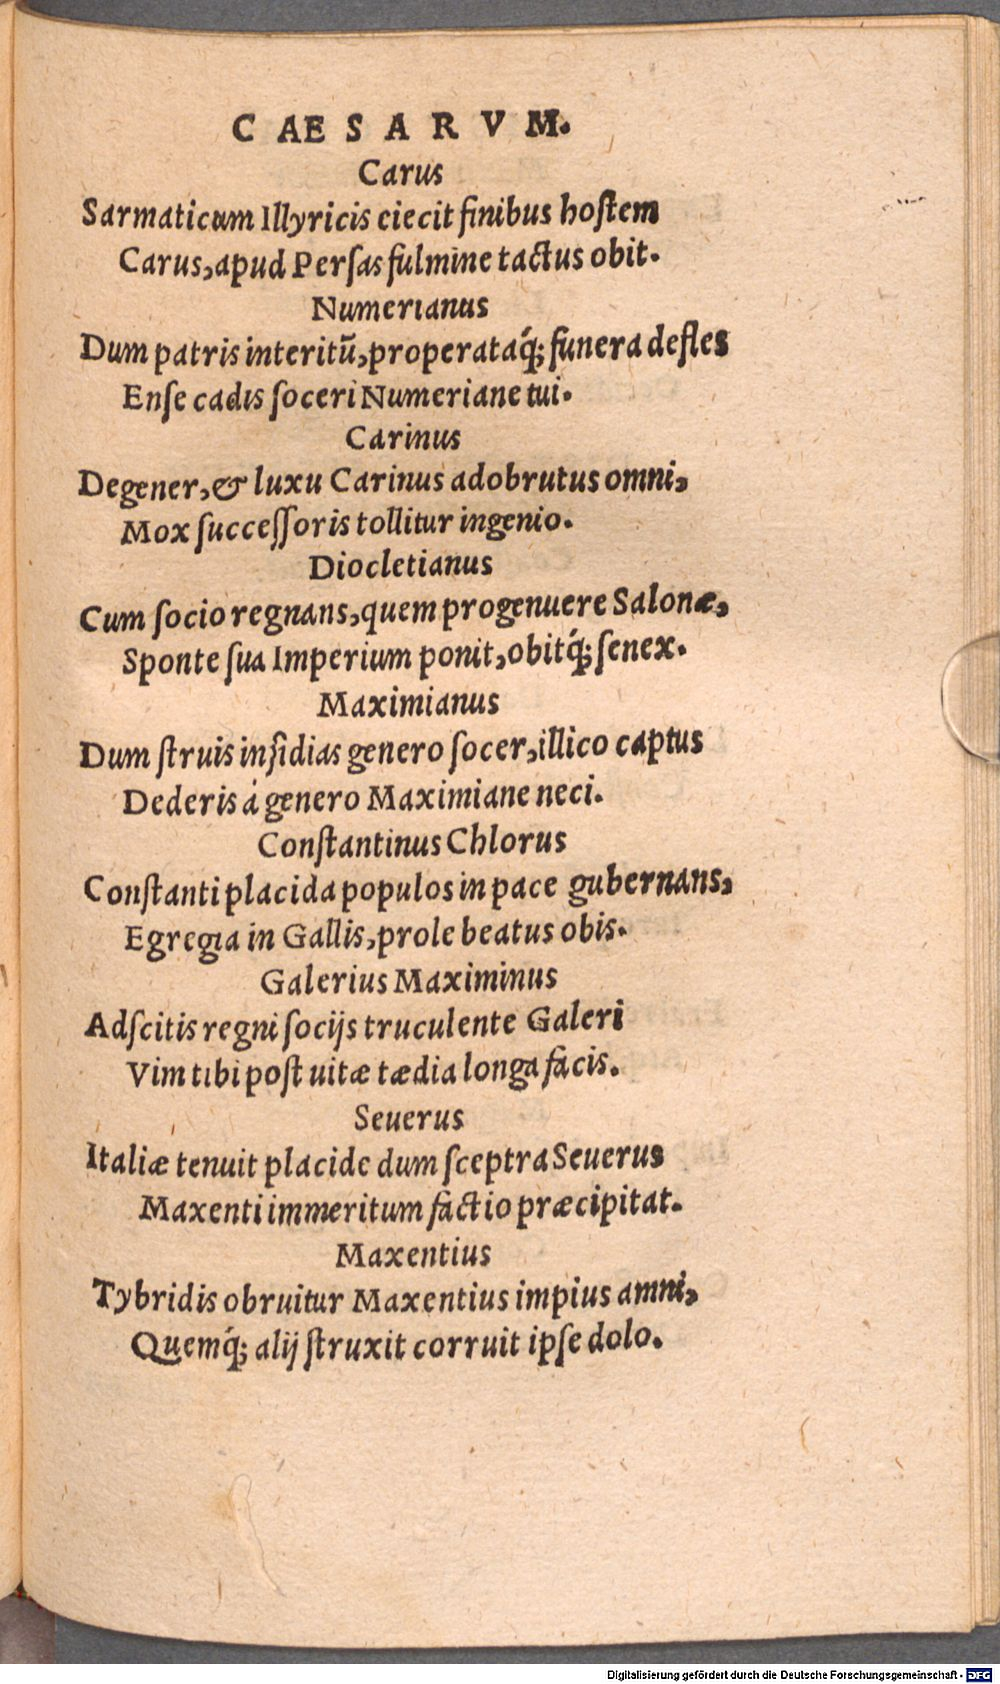 CAESARVM.
Carus
Sarmaticum Illyricis eiecit finibus hoſtem
Carus, apud Perſas fulmine tactus obit.
Numerianus
Dum patris interitū, properataq́; funera defles
Enſe cadis ſoceri Numeriane tui.
Carinus
Degener, & luxu Carinus adobrutus omni,
Mox ſucceſſoris tollitur ingenio.
Diocletianus
Cum ſocio regnans, quem progenuere Salonæ,
Sponte ſua Imperium ponit, obitq́; ſenex.
Maximianus
Dum ſtruis inſidias genero ſocer, illico captus
Dederis á genero Maximiane neci.
Conſtantinus Chlorus
Conſtanti placida populos in pace gubernans,
Egregia in Gallis, prole beatus obis.
Galerius Maximinus
Adſcitis regni ſocijs truculente Galeri
Vim tibi poſt uitæ tædia longa facis.
Seuerus
Italiæ tenuit placide dum ſceptra Seuerus
Maxenti immeritum factio præcipitat.
Maxentius
Tybridis obruitur Maxentius impius amni,
Quemq́; alij ſtruxit corruit ipſe dolo.
Digitalisierung gefördert durch die Deutsche Forschungsgemeinschaft - DFG